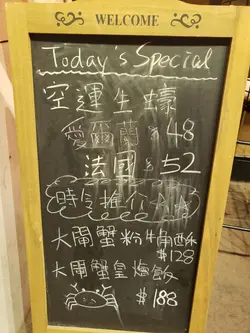 WELCOME
Today's Special
空運生蠔
愛爾蘭 $48
法國 $52
時令推介
大閘蟹粉牛角酥
$128
大閘蟹皇燴飯
$188